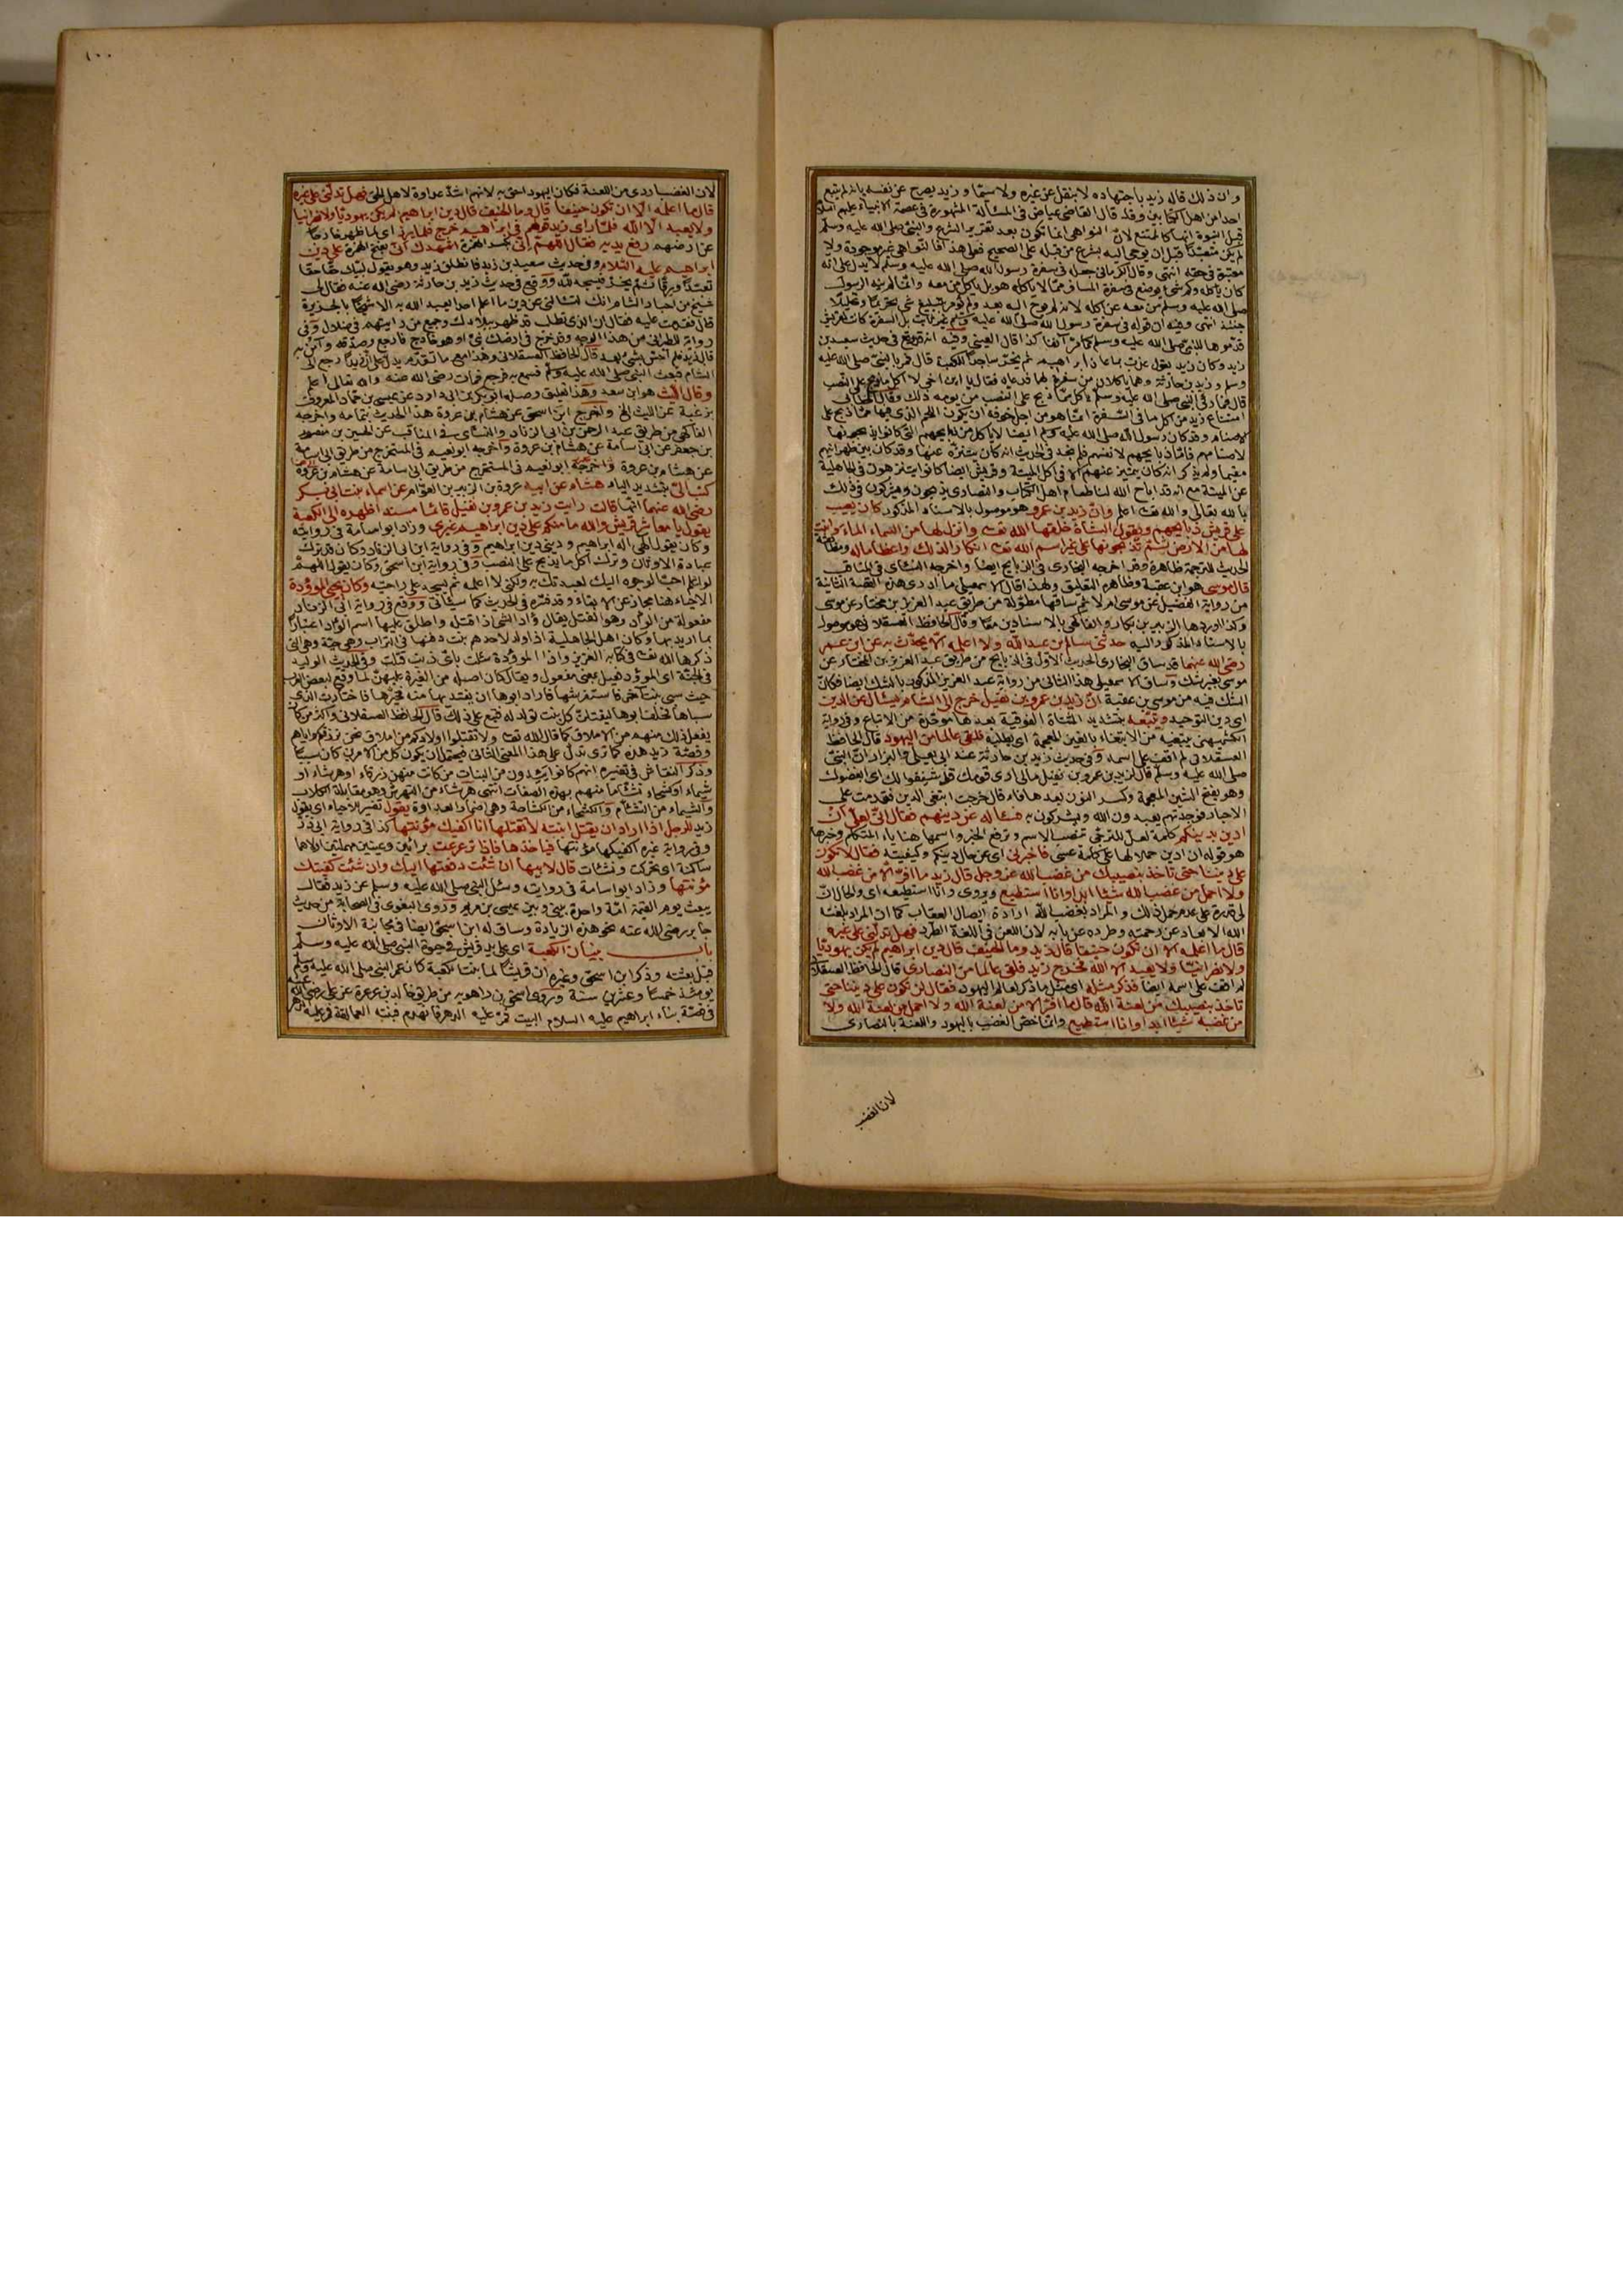 وان ذلك قاله زيد باجتهاده لا بنقل عن غيره ولا سيما وزيد يصرح عن نفسه بانه لم يتبع
احدا من اهل الكتابين وقد قال القاضي عياض في المسألة المشهورة في عصمة الانبياء عليهم السلام
قبل النبوة انها كالممتنع لان النواهي انما تكون بعد تقرير الشرع والنبي صلى الله عليه وسلم
لم يكن متعبدا قبل ان يوحى اليه بشرع من قبله على الصحيح فعلى هذا فالنواهي غير موجودة ولا
معتبرة في حقه انتهى وقال الكرماني جعل في سفرة رسول الله صلى الله عليه وسلم لا يدل على انه
كان ياكله وكم شئ يوضع في سفرة المسافر مما لا ياكله هو بل ياكل من معه وانما لم ينه الرسول
صلى الله عليه وسلم من معه عن اكله لانه لم يوح اليه بعد ولم يؤمر بتبليغ شئ تحريما وتحليلا
حينئذ انتهى وفيه ان قوله في سفرة رسول الله صلى الله عليه وسلم غير ثابت بل السفرة كانت لقريش
قدموها للنبي صلى الله عليه وسلم كما مر آنفا كذا قال العيني وفيه انه وقع في حديث سعيد بن
زيد وكان زيد يقول عذت بما عاذ ابراهيم ثم يخر ساجدا للكعبة قال فمر بالنبي صلى الله عليه
وسلم وزيد بن حارثة وهما ياكلان من سفرة لهما فدعياه فقال يا ابن اخي لا آكل ما ذبح على النصب
قال فما رؤي النبي صلى الله عليه وسلم ياكل مما ذبح على النصب من يومه ذلك وقال الخطابي
امتناع زيد من اكل ما في السفرة انما هو من اجل خوفه ان يكون اللحم الذي فيها مما ذبح على
الاصنام وقد كان رسول الله صلى الله عليه وسلم ايضا لا ياكل من ذبايحهم التي كانوا يذبحونها
لاصنامهم فاما ذبايحهم لانفسهم فلم نجد في الحديث انه كان يتنزه عنها وقد كان بين ظهرانيهم
مقيما ولم يذكر انه كان يتميز عنهم الا في اكل الميتة وقريش ايضا كانوا يتنزهون في الجاهلية
عن الميتة مع انه قد اباح الله لنا طعام اهل الكتاب والنصارى يذبحون ويشركون في ذلك
بالله تعالى والله تعا اعلم وان زيد بن عمرو هو موصول بالاسناد المذكور كان يعيب
على قريش ذبايحهم ويقول الشاة خلقها الله تعا وانزل لها من السماء الماء وانبت
لها من الارض ثم تذبحونها على غير اسم الله تعا انكارا لذلك واعظاما له ومطابقة
الحديث للترجمة ظاهرة وقد اخرجه البخاري في الذبايح ايضا واخرجه النسائي في المناقب
قال موسى هو ابن عقبة وظاهره التعليق ولهذا قال الاسمعيلي ما ادري هذه القصة الثانية
من رواية الفضيل عن موسى ام لا ثم ساقها مطولة من طريق عبد العزيز بن مختار عن موسى
وكذا اوردها الزبير بن بكار والفاكهي بالاسنادين معا وقال الحافظ العسقلاني هو موصول
بالاسناد المذكور اليه حدثني سالم بن عبد الله ولا اعلمه الا يحدث به عن ابن عمر
رضي الله عنهما قد ساق البخاري الحديث الاول في الذبايح من طريق عبد العزيز بن المختار عن
موسى بغير شك وساق الاسمعيلي هذا الثاني من رواية عبد العزيز المذكور بالشك ايضا فكان
الشك فيه من موسى بن عقبة ان زيد بن عمرو بن نفيل خرج الى الشام يسأل عن الدين
اي دين التوحيد ويتبعه بتشديد المثناة الفوقية بعدها موحدة من الاتباع وفي رواية
الكشميهني يبتغيه من الابتغاء بالغين المعجمة اي يطلبه فلقي عالما من اليهود قال الحافظ
العسقلاني لم اقف على اسمه وفي حديث زيد بن حارثة عند ابي يعلى والبزار ان النبي
صلى الله عليه وسلم قال لزيد بن عمرو بن نفيل مالي ارى قومك قد شنفوا لك اي ابغضوك
وهو بفتح الشين المعجمة وكسر النون بعدها فاء قال خرجت ابتغي الدين فقدمت على
الاحبار فوجدتهم يعبدون الله ويشركون به فسأله عن دينهم فقال اني لعلي ان
ادين بدينكم كلمة لعل للترجي تنصب الاسم وترفع الخبر واسمها هنا ياء المتكلم وخبرها
هو قوله ان ادين حملا لها على كلمة عسى فاخبرني اي عن حال دينكم وكيفيته فقال لا تكون
على ديننا حتى تأخذ بنصيبك من غضب الله عز وجل قال زيد ما افر الا من غضب الله
ولا احمل من غضب الله شيئا ابدا وانا استطيع ويروى وانا استطيعه اي والحال ان
لي قدرة على عدم حمل ذلك والمراد بغضب الله ارادة ايصال العقاب كما ان المراد بلعنة
الله الابعاد عن رحمته وطرده عن بابه لان اللعن في اللغة الطرد فهل تدلني على غيره
قال ما اعلمه الا ان تكون حنيفا قال زيد وما الحنيف قال دين ابراهيم لم يكن يهوديا
ولا نصرانيا ولا يعبد الا الله فخرج زيد فلقي عالما من النصارى قال الحافظ العسقلاني
لم اقف على اسمه ايضا فذكر مثله اي مثل ما ذكر لعالم اليهود فقال لن تكون على ديننا حتى
تاخذ بنصيبك من لعنة الله قال ما افر الا من لعنة الله ولا احمل من لعنة الله ولا
من غضبه شيئا ابدا وانا استطيع وانما خص الغضب باليهود واللعنة بالنصارى
لان الغضب
١٠٠
لان الغضب اردى من اللعنة فكان اليهود احق به لانهم اشد عداوة لاهل الحق فهل تدلني على غيره
قال ما اعلمه الا ان تكون حنيفا قال وما الحنيف قال دين ابراهيم لم يكن يهوديا ولا نصرانيا
ولا يعبد الا الله فلما رأى زيد قولهم في ابراهيم خرج فلما برز اي لما ظهر خارجا
عن ارضهم رفع يديه فقال اللهم اني بكسر الهمزة اشهدك اني بفتح الهمزة على دين
ابراهيم عليه السلام وفي حديث سعيد بن زيد فانطلق زيد وهو يقول لبيك حقا حقا
تعبدا ورقا ثم يخر فيسجد لله ووقع في حديث زيد بن حارثة رضي الله عنه فقال لي
شيخ من احبار الشام انك لتسألني عن دين ما اعلم احدا يعبد الله به الا شيخا بالجزيرة
قال فقدمت عليه فقال ان الذي تطلب قد ظهر ببلادك وجميع من رايتهم في ضلال وفي
رواية الطبراني من هذا الوجه وقد خرج في ارضك نبي او هو خارج فارجع وصدقه وآمن به
قال زيد فلم احس بشئ بعد قال الحافظ العسقلاني وهذا مع ما تقدم يدل على ان زيدا رجع الى
الشام فبعث النبي صلى الله عليه وسلم فسمع به فرجع فمات رضي الله عنه والله تعالى اعلم
وقال الليث هو ابن سعد وهذا تعليق وصله ابو بكر بن ابي داود عن عيسى بن حماد المعروف
بزغبة عن الليث الخ واخرج ابن اسحق عن هشام بن عروة هذا الحديث بتمامه واخرجه
الفاكهي من طريق عبد الرحمن بن ابي الزناد والنسائي في المناقب عن الحسين بن منصور
بن جعفر عن ابي اسامة عن هشام بن عروة واخرجه ابو نعيم في المستخرج من طريق ابي اسامة
عن هشام بن عروة واخرجه ابو نعيم في المستخرج من طريق ابي اسامة عن هشام بن عروة
كتب الي بتشديد الياء هشام عن ابيه عروة بن الزبير بن العوام عن اسماء بنت ابي بكر
رضي الله عنهما انها قالت رايت زيد بن عمرو بن نفيل قائما مسندا ظهره الى الكعبة
يقول يا معاشر قريش والله ما منكم على دين ابراهيم غيري وزاد ابو اسامة في روايته
وكان يقول الهي اله ابراهيم وديني دين ابراهيم وفي رواية ابن ابي الزناد وكان قد ترك
عبادة الاوثان وترك اكل ما يذبح على النصب وفي رواية ابن اسحق وكان يقول اللهم
لو اعلم احب الوجوه اليك لعبدتك به ولكني لا اعلمه ثم يسجد على راحته وكان يحيي الموؤدة
الاحياء هنا مجاز عن الابقاء وقد فسره في الحديث كما سيأتي ووقع في رواية ابن ابي الزناد
مفعولة من الوأد وهو القتل يقال وأد الشئ اذا قتله واطلق عليها اسم الوأد اعتبارا
بما اريد بها وكان اهل الجاهلية اذا ولد لاحدهم بنت دفنها في التراب وهي حية وهي التي
ذكرها الله تعا في كتابه العزيز واذا الموؤدة سئلت باي ذنب قتلت وفي الحديث الوئيد
في الجنة اي الموؤد فعيل بمعنى مفعول ويقال كان اصلها من الغيرة عليهن لما وقع لبعض العرب
حيث سبى بنت آخر فاستفرشها فاراد ابوها ان يفتديها منه فخيرها فاختارت الذي
سباها فحلف ابوها ليقتلن كل بنت تولد له فتبع على ذلك قال الحافظ العسقلاني واكثر من كان
يفعل ذلك منهم من الاملاق كما قال الله تعا ولا تقتلوا اولادكم من املاق نحن نرزقكم واياهم
وقصة زيد هذه كما ترى تدل على هذا المعنى الثاني فيحتمل ان يكون كل من الامرين كان سببا
وذكر النقاش في تفسيره انهم كانوا يئدون من البنات من كانت منهن زرقاء او هرشاء او
شيماء او كشحاء تشأما منهم بهذه الصفات انتهى هرشاء من التهريش وهو مقابلة الكلاب
والشيماء من التشأم والكشحاء من الكشاحة وهي اضمار العداوة يقول تفسير للاحياء اي يقول
زيد للرجل اذا اراد ان يقتل ابنته لا تقتلها انا اكفيك مؤنتها كذا في رواية ابي ذر
وفي رواية غيره اكفيكها مؤنتها فياخذها فاذا ترعرعت برائين وعينين مهملتين اولاهما
ساكنة اي تحركت ونشئت قال لابيها ان شئت دفعتها اليك وان شئت كفيتك
مؤنتها وزاد ابو اسامة في روايته وسئل النبي صلى الله عليه وسلم عن زيد فقال
يبعث يوم القيمة امة واحدة بيني وبين عيسى بن مريم وروى البغوي في الصحابة من حديث
جابر رضي الله عنه نحو هذه الزيادة وساق له ابن اسحق ايضا في مجانبة الاوثان
باب بنيان الكعبة اي على يد قريش في حيوة النبي صلى الله عليه وسلم
قبل بعثته وذكر ابن اسحق وغيره ان قريشا لما بنت الكعبة كان عمر النبي صلى الله عليه وسلم
يومئذ خمسا وعشرين سنة وروى اسحق بن راهويه من طريق خالد بن عرعرة عن علي رضي الله عنه
في قصة بناء ابراهيم عليه السلام البيت فمر عليه الدهر فانهدم فبنته العمالقة فمر عليه الدهر